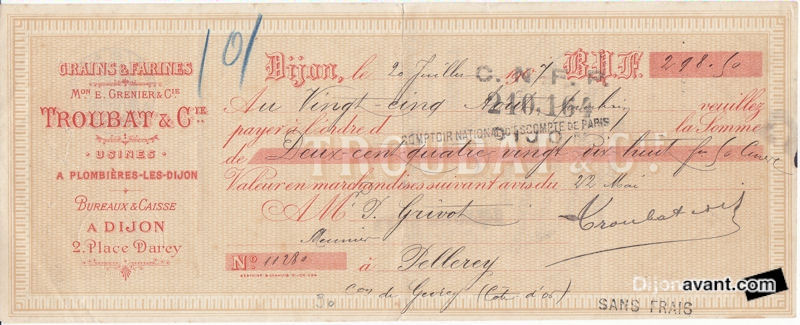 GRAINS & FARINES
MON E. GRENIER & CIE
TROUBAT & CIE
USINES
A PLOMBIÈRES-LES-DIJON
BUREAUX & CAISSE
A DIJON
2, Place Darcy
101
Dijon, le 20 Juillet 1907 B.P.F. 298.50
C.N.E.P.
Au Vingt-cinq Août veuillez
210.164
payer à l'ordre d la Somme
COMPTOIR NATIONAL D'ESCOMPTE DE PARIS
DIJON
de Deux cent quatre vingt dix huit frs 50 cmes
TROUBAT & CIE
Valeur en marchandises suivant avis du 22 Mai
A Mr P. Grivot
Troubat & Cie
Meunier
No 11280 à Pellerey
30 con de Gevrey (Côte d'or)
SANS FRAIS
Dijonavant.com